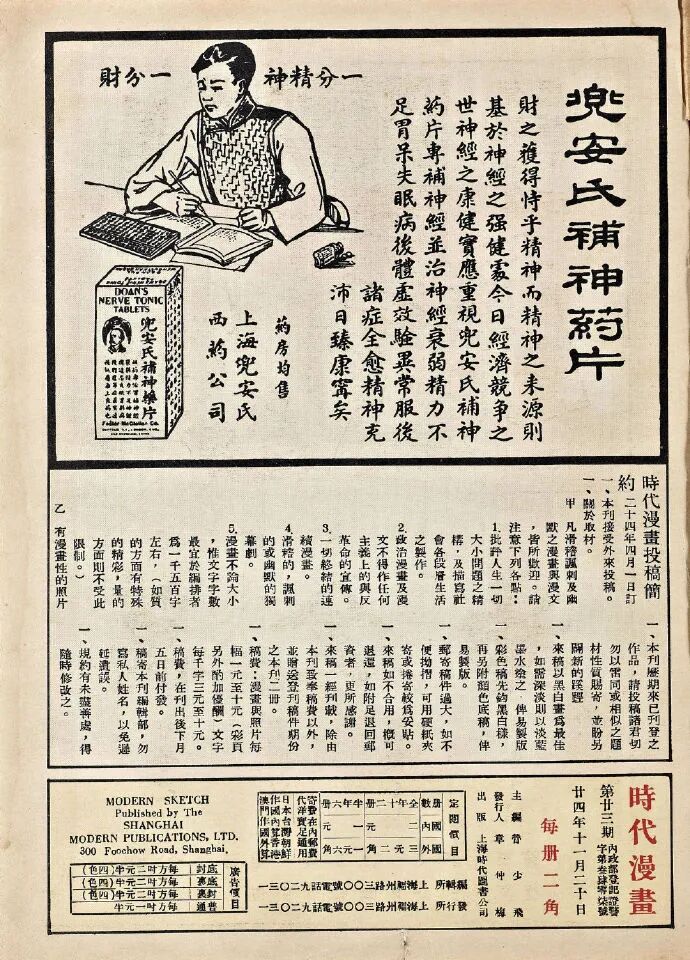 兜安氏補神葯片
一分精神一分財
財之獲得恃乎精神而精神之来源則
基於神經之强健處今日經濟競争之
世神經之康健實應重視兜安氏補神
葯片專補神經並治神經衰弱精力不
足胃呆失眠病後體虛效驗異常服後
諸症全愈精神充
沛日臻康寗矣
葯房均售
上海兜安氏
西葯公司
DOAN'S
NERVE TONIC
TABLETS
兜安氏補神藥片
Foster McClellan Co.
時代漫畫投稿簡
約
二十四年四月一日訂
一、本刊接受外來投稿。
一、關於取材。
甲 凡滑稽諷刺及幽
默之漫畫與漫文
，皆所歡迎。請
注意下列各點：
1.批評人生一切
大小問題之精
構，及描寫社
會各段層生活
之製作。
2.政治漫畫及漫
文不得作任何
主義上的與反
革命的宣傳。
3.一切終結的連
續漫畫。
4.滑稽的，諷刺
的或幽默的獨
幕劇。
5.漫畫不論大小
，惟文字字數
最宜於編排者
為一千五百字
左右，（如質
的方面有特殊
的精彩，量的
方面則不受此
限制。）
乙 有漫畫性的照片
一、本刊歷期來已刊登之
作品，請投稿諸君切
勿以雷同或相似之題
材性質賜寄，並盼另
闢新的蹊徑。
一、來稿以黑白畫為最佳
，如需深淡則以淡藍
墨水塗之，俾易製版
一、彩色稿先鈎黑白樣，
再另附顏色底稿，俾
易製版。
一、郵寄稿件過大，如不
便拗摺，可用硬紙夾
寄或捲寄較為妥貼。
一、來稿如不合用，概可
退還，如附足退回郵
資者，更所感謝。
一、來稿一經刊載，除由
本刊致奉稿費以外，
並贈送登刊稿件期份
之本刊二册。
一、稿費：漫畫與照片每
幅一元至十元，彩頁
另外酌加優酬，文字
每千字三元至十元。
一、稿費，在刊出後下月
五日前付發。
一、稿寄本刊編輯部，勿
寫私人姓名，以免遲
延遺誤。
一、規約有未盡善處，得
隨時修改之。
時代漫畫
第廿三期
內政部登記證警
字第叁肆零柒號
廿四年十一月二十日
每册二角
主編 魯少飛
發行人 章仲梅
出版 上海時代圖書公司
定閱價目
册數 國內 國外
全年十二册 二元 三元
半年六册 一元 一元六角
寄費在內郵費
代洋實足通用
日本台灣朝鮮
作國內算香港
澳門作國外算
編輯所 上海福州路三〇〇號電話九二〇三一
發行所 上海福州路三〇〇號電話九二〇三一
廣告價目
封底 每方吋二元半（四色）
裏底 每方吋二元半（四色）
裏封 每方吋二元半（四色）
普通 每方吋一元半
MODERN SKETCH
Published by The
SHANGHAI
MODERN PUBLICATIONS, LTD.
300 Foochow Road, Shanghai.